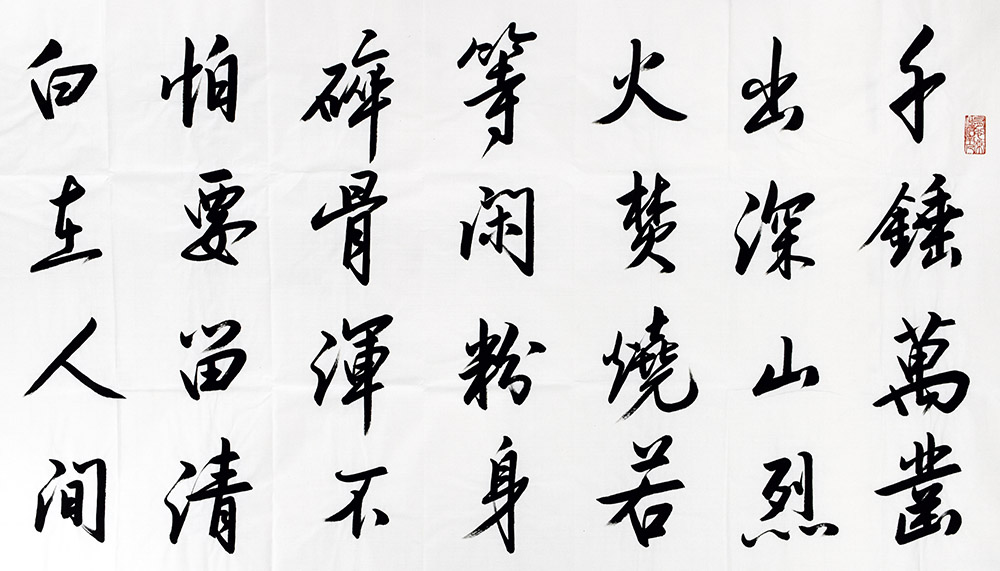 千錘萬鑿
出深山烈
火焚燒若
等闲粉身
碎骨渾不
怕要留清
白在人间